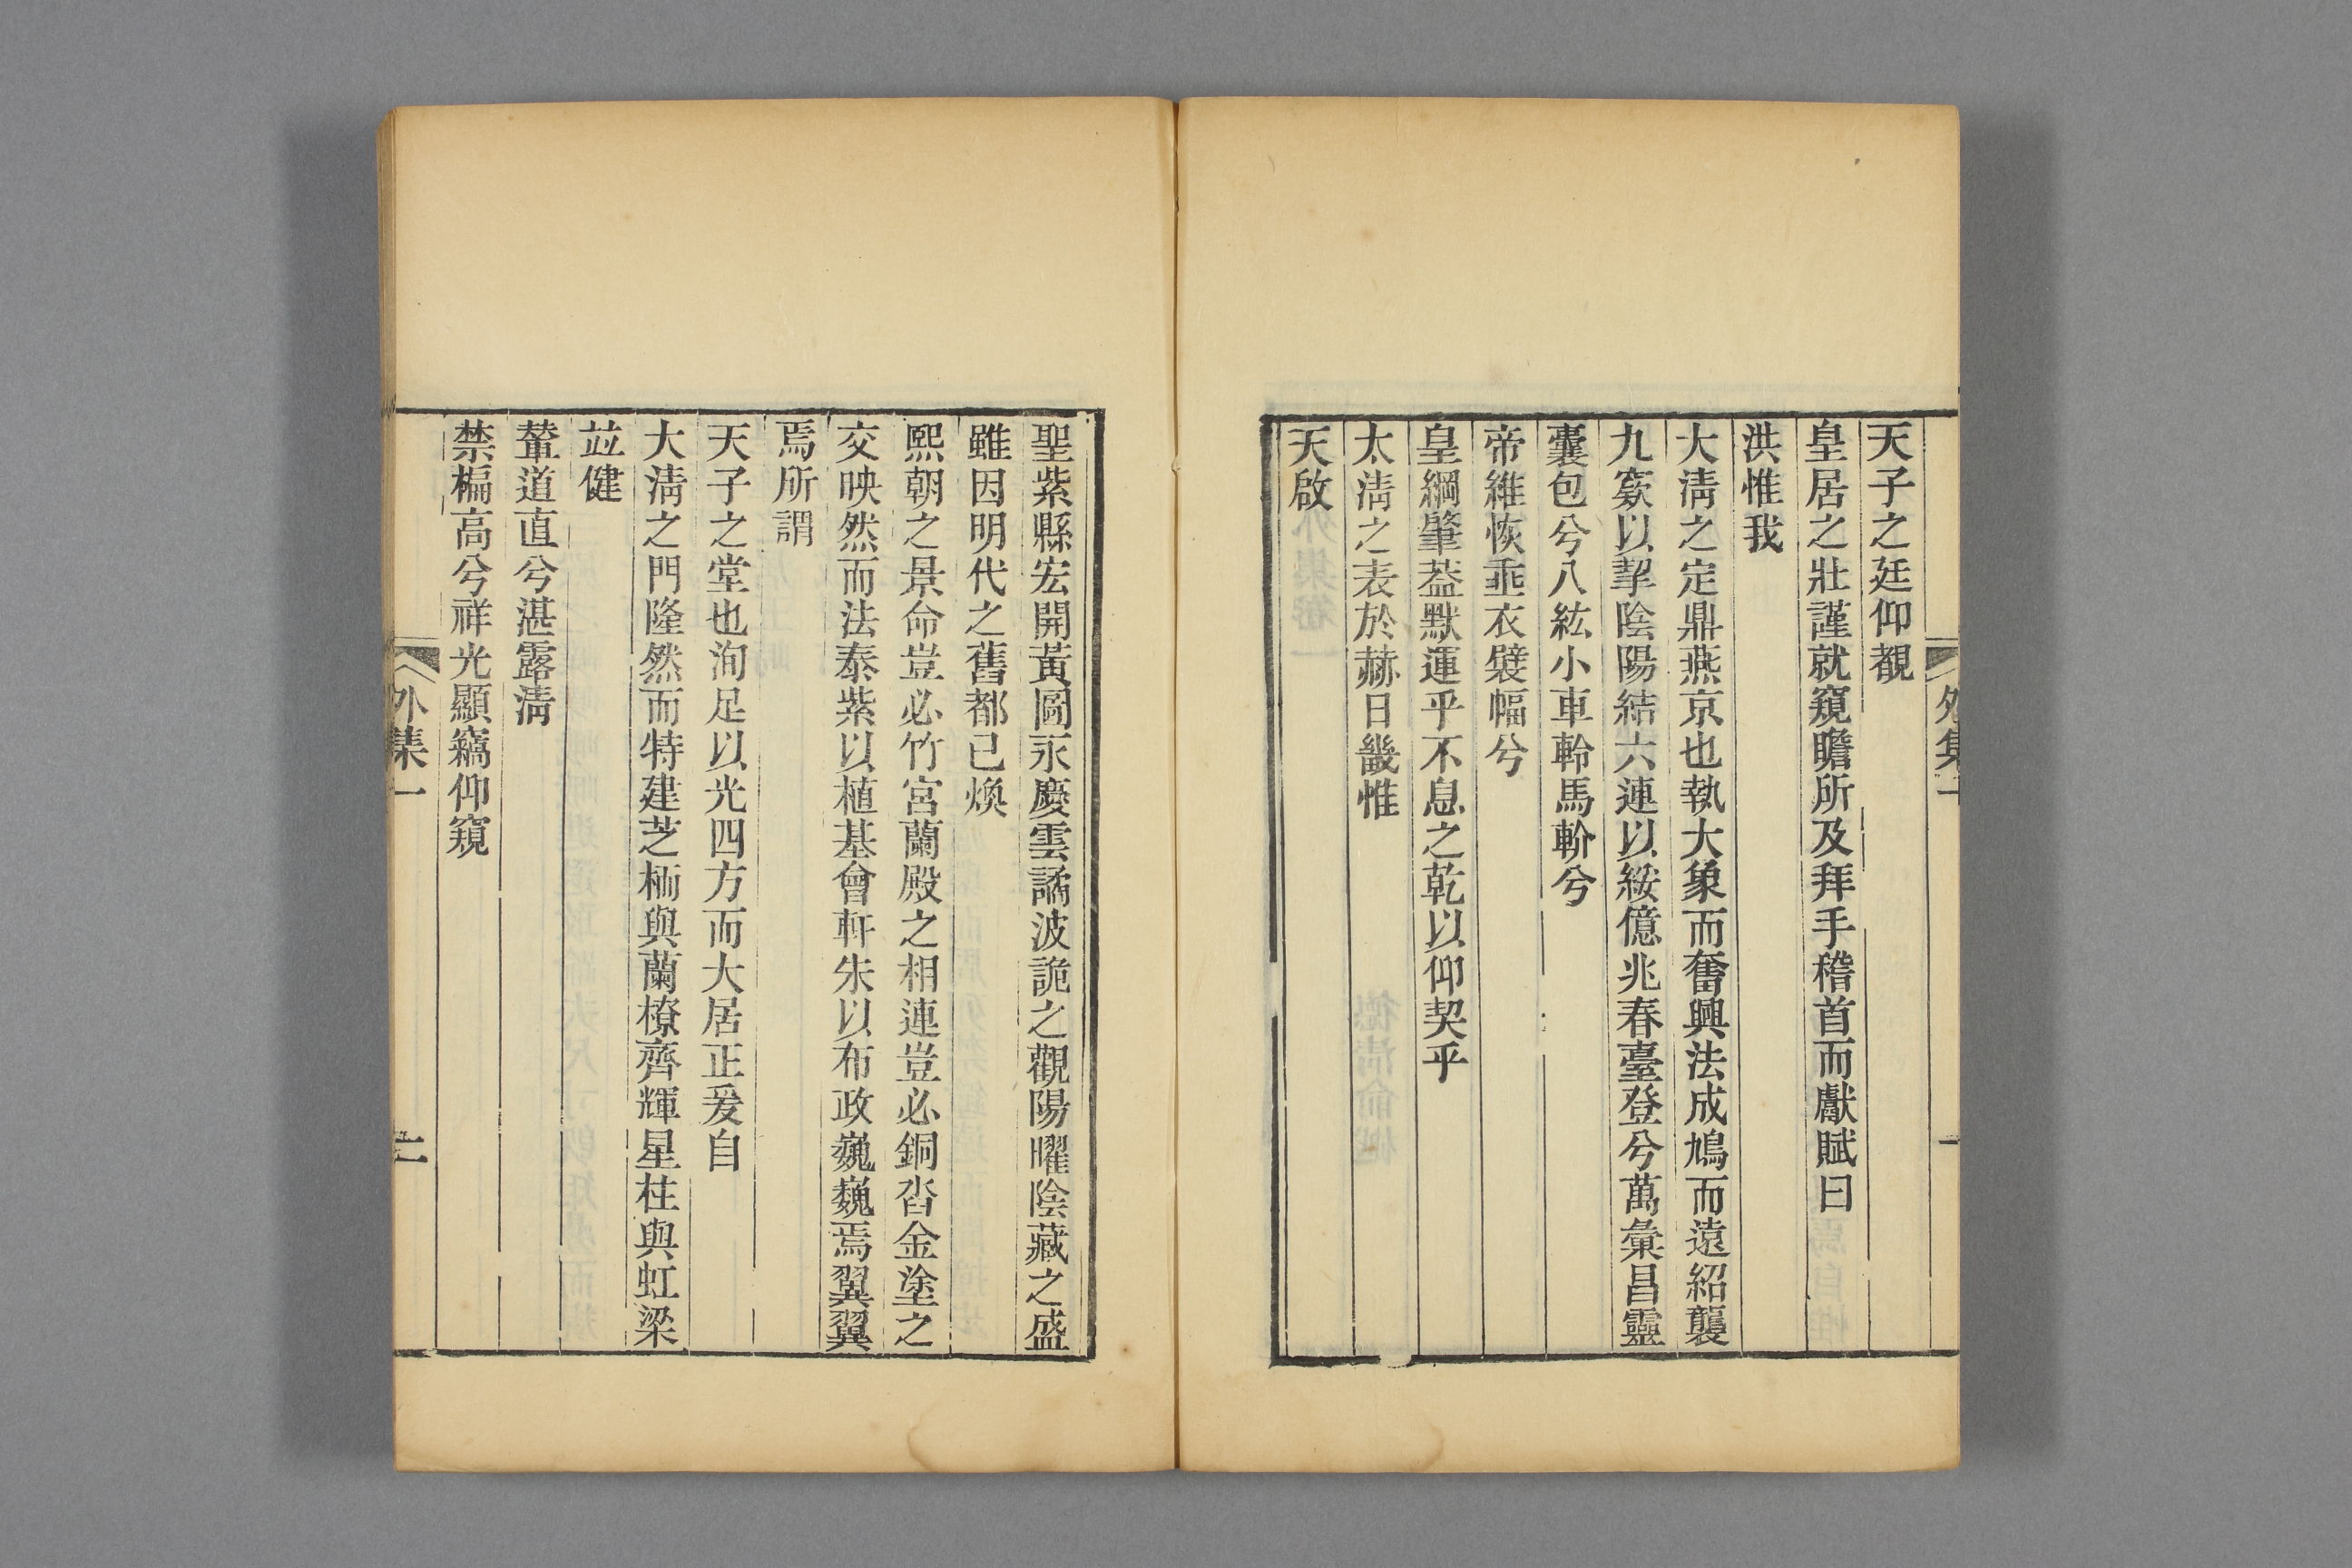 外集一
一
天子之廷仰覩
皇居之壯謹就窺瞻所及拜手稽首而獻賦曰
洪惟我
大淸之定鼎燕京也執大象而奮興法成鳩而遠紹襲
九窾以挈陰陽結六連以綏億兆春臺登兮萬彙昌靈
囊包兮八紘小車軨馬軨兮
帝維恢垂衣襞幅兮
皇綱肇葢默運乎不息之乾以仰契乎
太淸之表於赫日畿惟
天啟
聖紫縣宏開黃圖永慶雲譎波詭之觀陽曜陰藏之盛
雖因明代之舊都已煥
熙朝之景命豈必竹宮蘭殿之相連豈必銅沓金塗之
交映然而法泰紫以植基會軒朱以布政巍巍焉翼翼
焉所謂
天子之堂也洵足以光四方而大居正爰自
大淸之門隆然而特建芝栭與蘭橑齊輝星柱與虹梁
竝健
輦道直兮湛露淸
禁楄高兮祥光顯竊仰窺
外集一
二